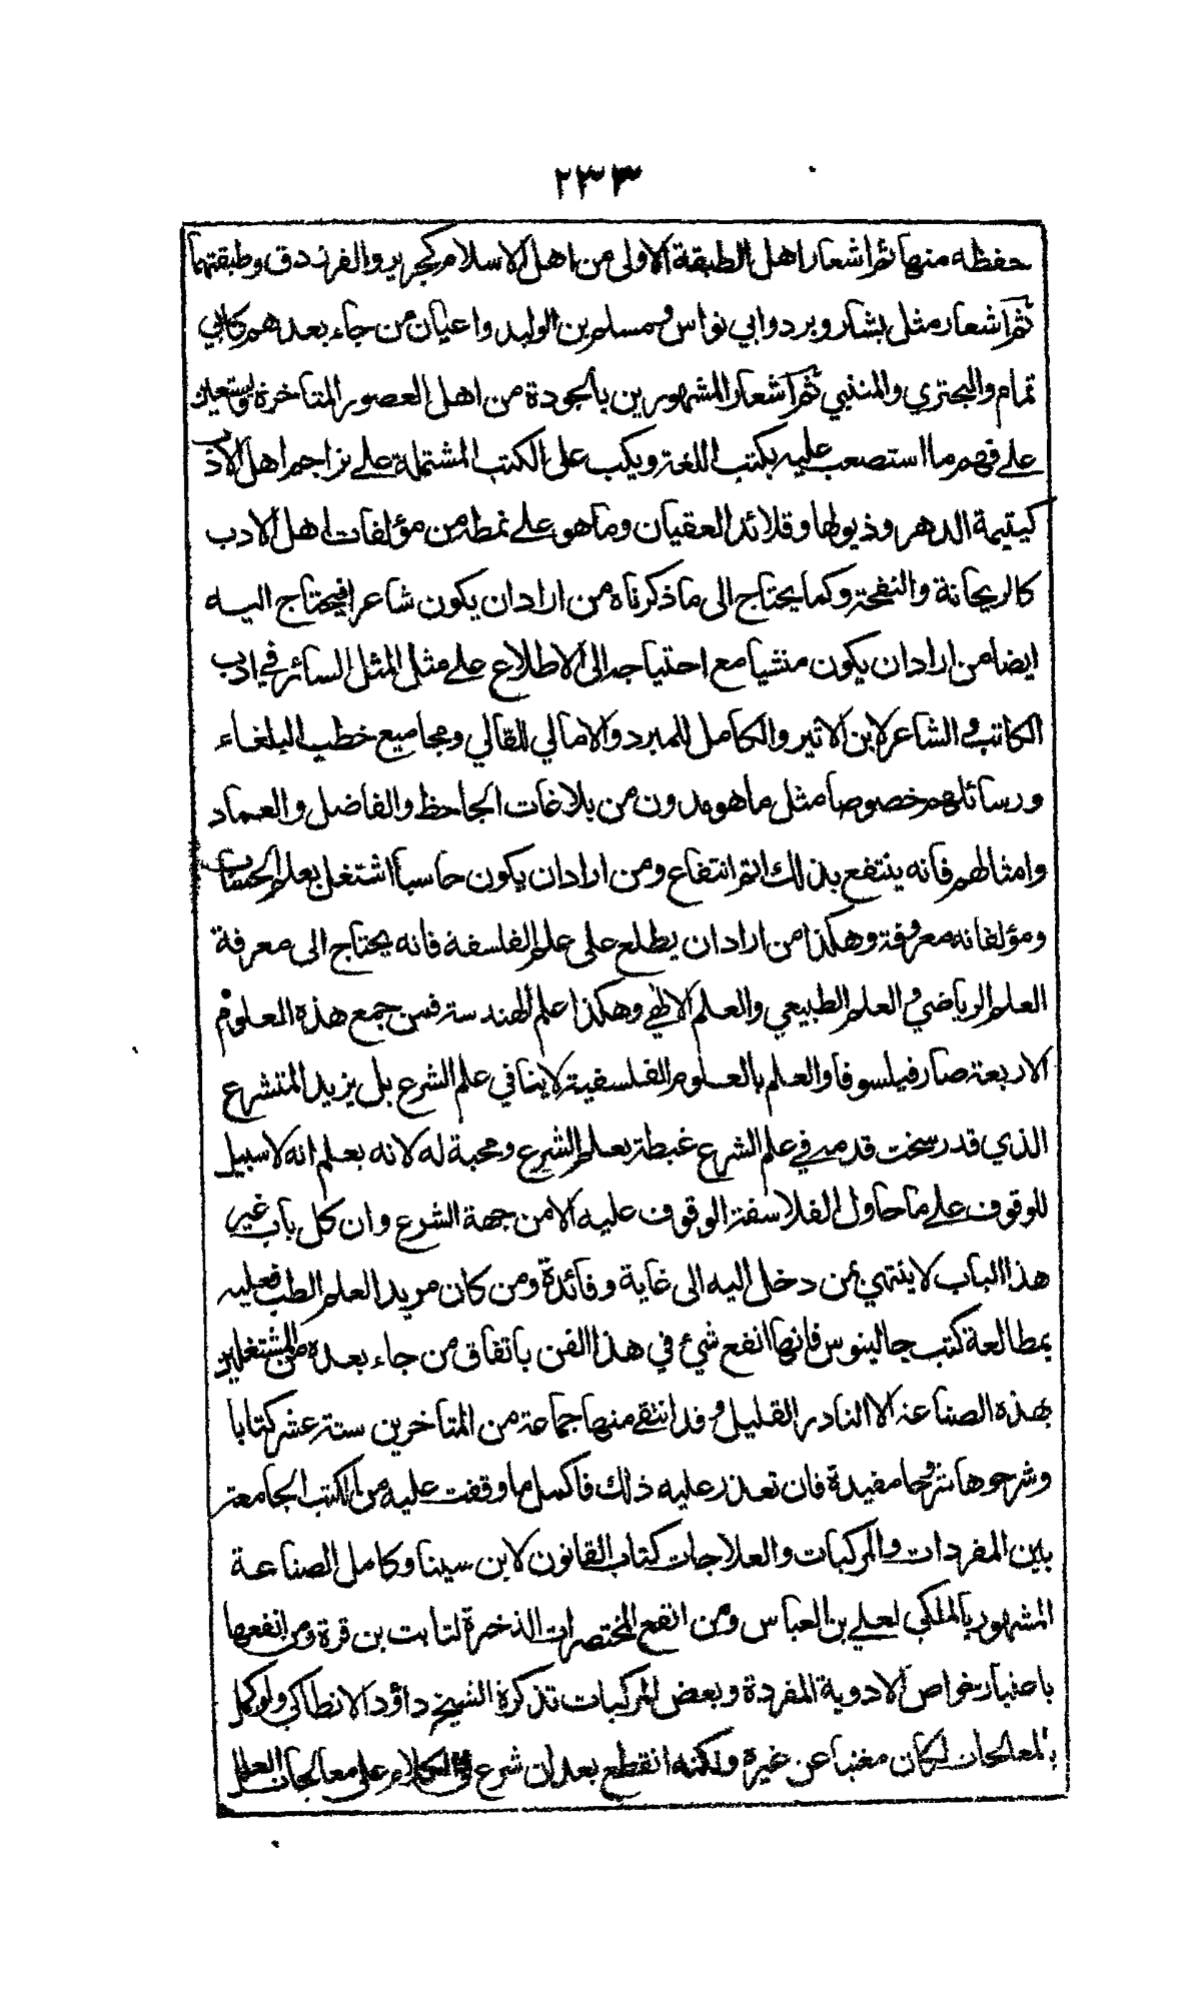 ٢٣٣
حفظه منها ثم اشعار اهل الطبقة الاولى من اهل الاسلام كجرير والفرزدق وطبقتهما
ثم اشعار مثل بشار وبرد وابي نواس ومسلم بن الوليد واعيان من جاء بعدهم كابي
تمام والبحتري والمتنبي ثم اشعار المشهورين بالجودة من اهل العصور المتاخرة ويستعين
على فهم ما استصعب عليه بكتب اللغة ويكب على الكتب المشتملة على تراجم اهل الادب
كيتيمة الدهر وذيولها وقلائد العقيان وما هو على نمطه من مؤلفات اهل الادب
كالريحانة والنفحة وكما يحتاج الى ما ذكرناه من اراد ان يكون شاعرا فيحتاج اليه
ايضا من اراد ان يكون منشيا مع احتياجه الى الاطلاع على مثل المثل السائر في ادب
الكاتب والشاعر لابن الاثير والكامل للمبرد والامالي للقالي ومجاميع خطب البلغاء
ورسائلهم خصوصا مثل ما هو مدون من بلاغات الجاحظ والفاضل والعماد
وامثالهم فانه ينتفع بذلك اتم انتفاع ومن اراد ان يكون حاسبا اشتغل بعلم الحساب
ومؤلفاته معروفة وهكذا من اراد ان يطلع على علم الفلسفة فانه يحتاج الى معرفة
العلم الرياضي والعلم الطبيعي والعلم الالهي وهكذا علم الهندسة فمن جمع هذه العلوم
الاربعة صار فيلسوفا والعلم بالعلوم الفلسفية لا ينافي علم الشرع بل يزيد المتشرع
الذي قد رسخت قدمه في علم الشرع غبطة بعلم الشرع ومحبة له لانه يعلم انه لا سبيل
للوقوف على ما حاول الفلاسفة الوقوف عليه الا من جهة الشرع وان كل باب غير
هذا الباب لا ينتهي بمن دخل اليه الى غاية وفائدة ومن كان مريدا لعلم الطب فعليه
بمطالعة كتب جالينوس فانها انفع شيء في هذا الفن باتفاق من جاء بعده من المشتغلين
بهذه الصناعة الا النادر القليل وقد انتقى منها جماعة من المتاخرين ستة عشر كتابا
وشرحوها شروحا مفيدة فان تعذر عليه ذلك فاكمل ما وقفت عليه من الكتب الجامعة
بين المفردات والمركبات والعلاجات كتاب القانون لابن سينا وكامل الصناعة
المشهور بالملكي لعلي بن العباس ومن انفع المختصرات الذخرة لثابت بن قرة ومن انفعها
باعتبار خواص الادوية المفردة وبعض المركبات تذكرة الشيخ داؤد الانطاكي ولو كمل
بالمعالجات لكان مغنيا عن غيره ولكنه انقطع بعد ان شرع في على معالجات العلل